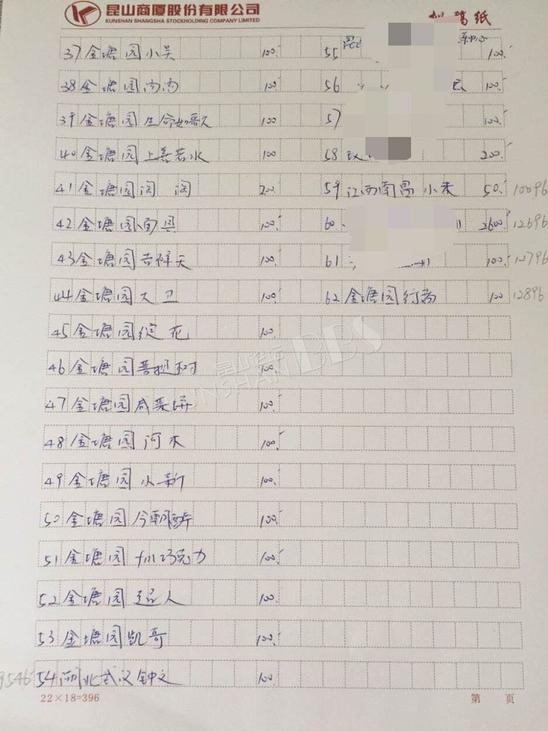 昆山商厦股份有限公司
KUNSHAN SHANGSHA STOCKHOLDING COMPANY LIMITED
稿纸
37 金塘园 小吴 100.
38 金塘园 雨雨 100.
39 金塘园 生命如歌 100.
40 金塘园 上善若水 100
41 金塘园 闵 闵 200.
42 金塘园 100.
43 金塘园 吉祥天 100.
44 金塘园 大卫 100.
45 金塘园 绽花 100
46 金塘园 菩提树 100.
47 金塘园 咸菜饼 100.
48 金塘园 河木 100.
49 金塘园 小新 100.
50 金塘园 今朝醉 100.
51 金塘园 巧克力 100.
52 金塘园 超人 100
53 金塘园 凯哥 100.
9546 54 湖北武汉 钟文 100
55 100.
56 100.
57 100.
58 200.
59 江西南昌 小禾 50. 10096
60. 2600. 12696
61 100. 12796
62 金塘园 行者 100 12896
昆山论坛BBS
22×18=396
第 页